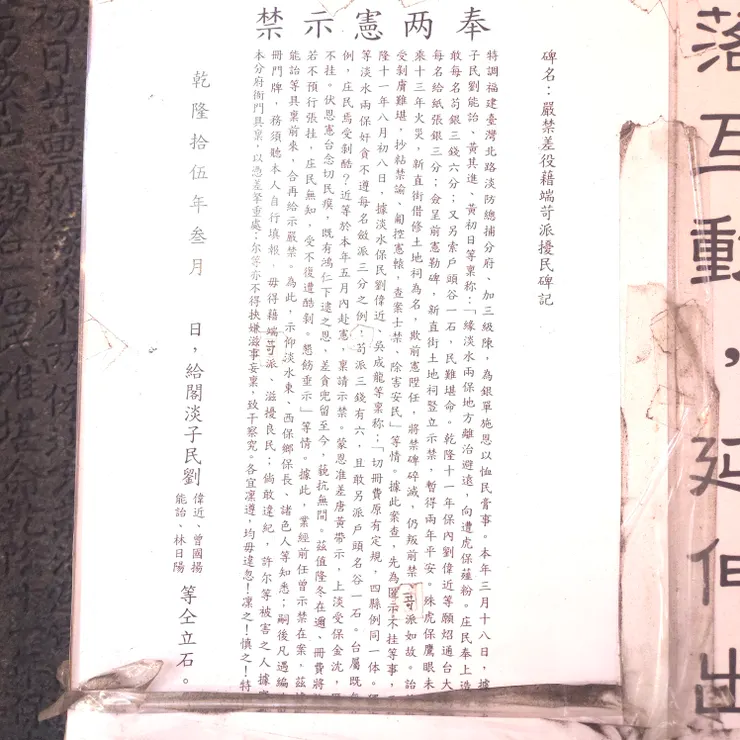 禁示憲两奉
碑名：嚴禁差役藉端苛派擾民碑記
特調福建臺灣北路淡防總捕分府、加三級陳，為銀單施恩以恤民膏事。本年三月十八日，據
子民劉能詒、黃其進、黃初日等稟稱：「緣淡水兩保地方離治避遠，向遭虎保薤粉。庄民奉上造
敢每名苛銀三錢六分；又另索戶頭谷一石，民難堪命。乾隆十一年保內劉偉近等願炤通台大
每名給紙張銀三分；僉呈前憲勒碑，新直街土地祠豎立示禁，暫得兩年平安。殊虎保鷹眼未
乘十三年火災，新直街借修土地祠為名，欺前憲陞任，將禁碑碎滅，仍叛前禁，苛派如故。詒
受剝膚難堪，抄粘禁諭，匍控憲轅，查案士禁，除害安民」等情。據此案查，先為匾示不挂等事，
隆十一年八月初八日，據淡水保民劉偉近、吳成龍等稟稱：「切冊費原有定規，四縣例同一体。
等淡水兩保奸貪不遵每名斂派三分之例，苟派三錢有六，且敢另派戶頭名谷一石。台屬既
例，庄民焉受剝酷？近等於本年五月內赴憲，稟請示禁。蒙恩准差唐黃帶示，上淡受保金沈，
不挂。伏恩憲台念切民瘼，既有鴻仁下逮之恩，差貪兜留至今，藐抗無間。茲值隆冬在邇，冊費將
若不預行張挂，庄民無知，受不復遭酷剝。懇飭垂示」等情。據此，業經前任曾示禁在案，茲
能詒等具稟前來，合再給示嚴禁。為此，示仰淡水東、西保鄉保長、諸色人等知悉；嗣後凡遇編
冊門牌，務須聽本人自行填報，毋得藉端苛派、滋擾良民；倘敢違紀，許尔等被害之人據
本分府衙門具稟，以憑差拏重處；尔等亦不得挾嫌滋事妄稟，致干察究。各宜凜遵，均毋違忽！凜之！慎之！特
乾隆拾伍年叁月　日，給閣淡子民劉偉近、曾國揚
能詒、林日陽等仝立石。
落互動，延伸出